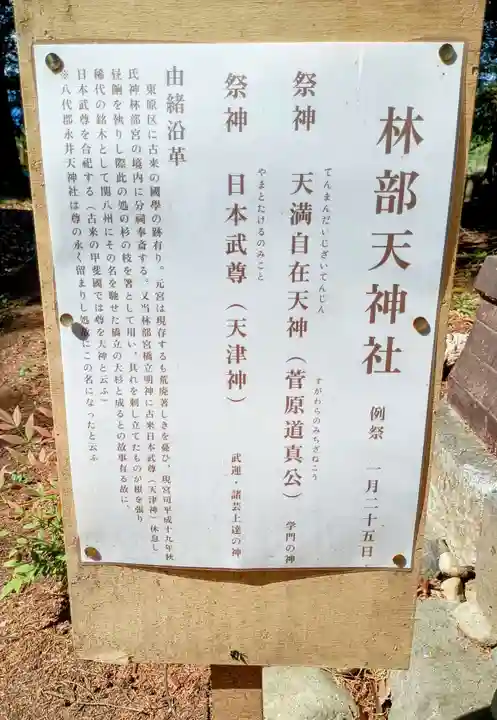 林部天神社 例祭 一月二十五日
てんまんだいじざいてんじん すがわらのみちざねこう
祭神 天満自在天神(菅原道真公) 学門の神
やまとたけるのみこと
祭神 日本武尊(天津神) 武運・諸芸上達の神
由緒沿革
東原区に古来の國學の跡有り。元宮は現存するも荒廃著しきを憂ひ、現宮司平成十九年秋
氏神林部宮の境内に分祠奉斎する。又当林部宮橋立明神に古来日本武尊(天津神)休息し
昼餉を執りし際此の処の杉の枝を箸として用い、其れを刺し立てたものが根を張り
稀代の銘木として関八州にその名を馳せた橋立の大杉と成るとの故事有る故に
日本武尊を合祀する(古来の甲斐國では尊を天神と云ふ)
※八代郡永井天神社は尊の永く留まりし処故にこの名になったと云ふ